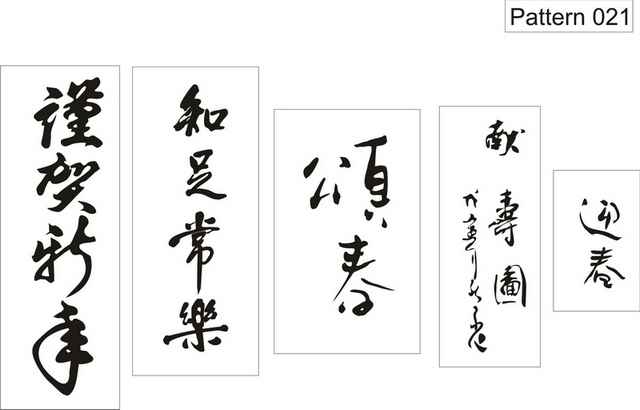 Pattern 021
謹賀新年
知足常樂
頌春
献壽圖
迎春